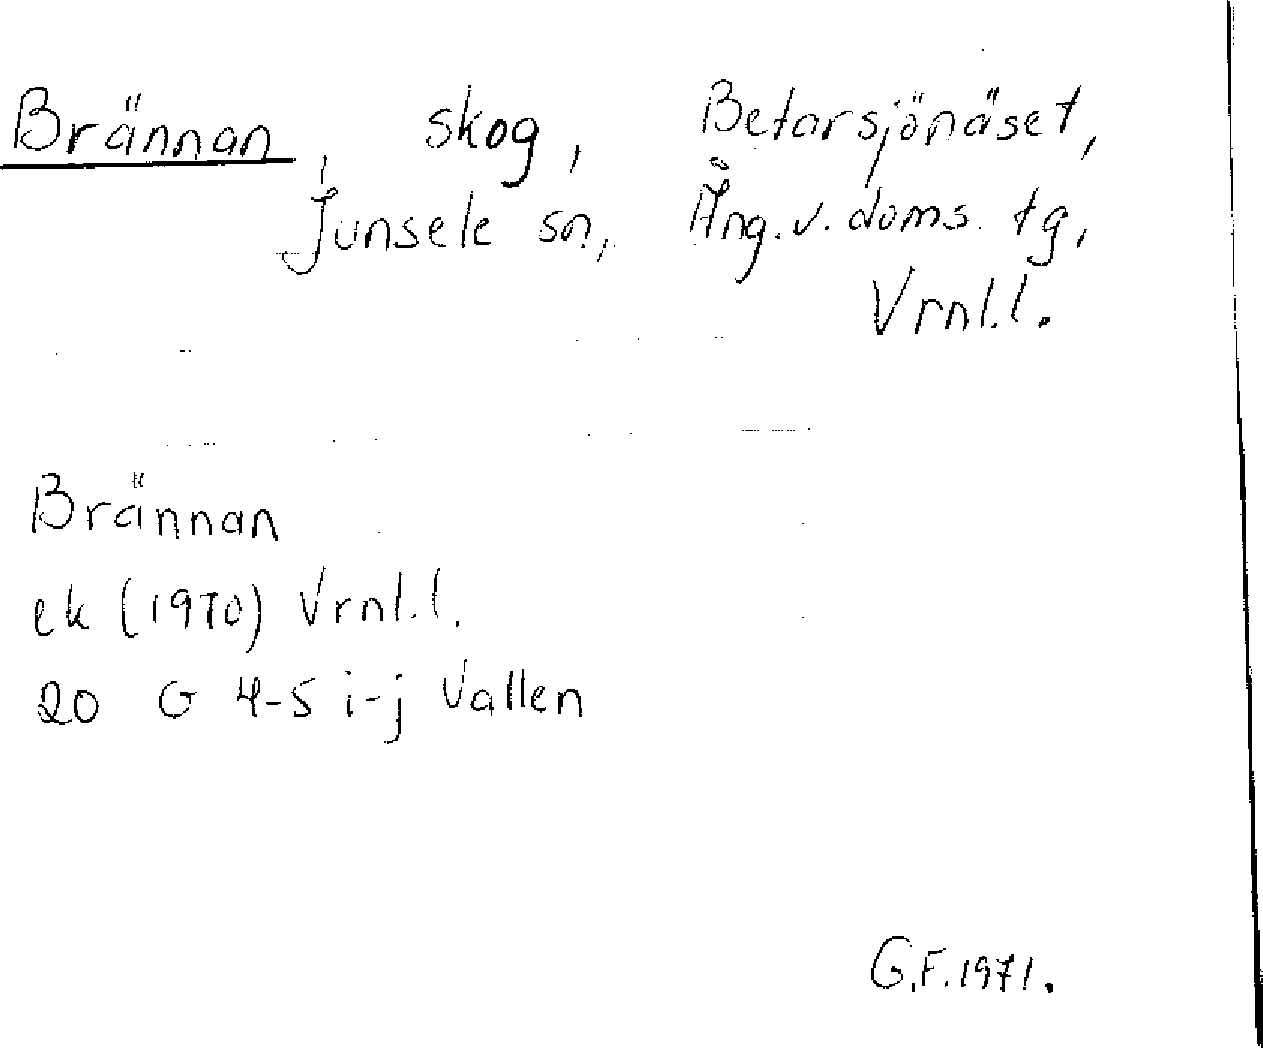 Brännan, skog, Betarsjönäset,
Junsele sn, Ång.v.doms. tg,
Vrnl.l.
Brännan
ek (1970) Vrnl.l.
20 G 4-5 i-j Vallen
G.F.1971.